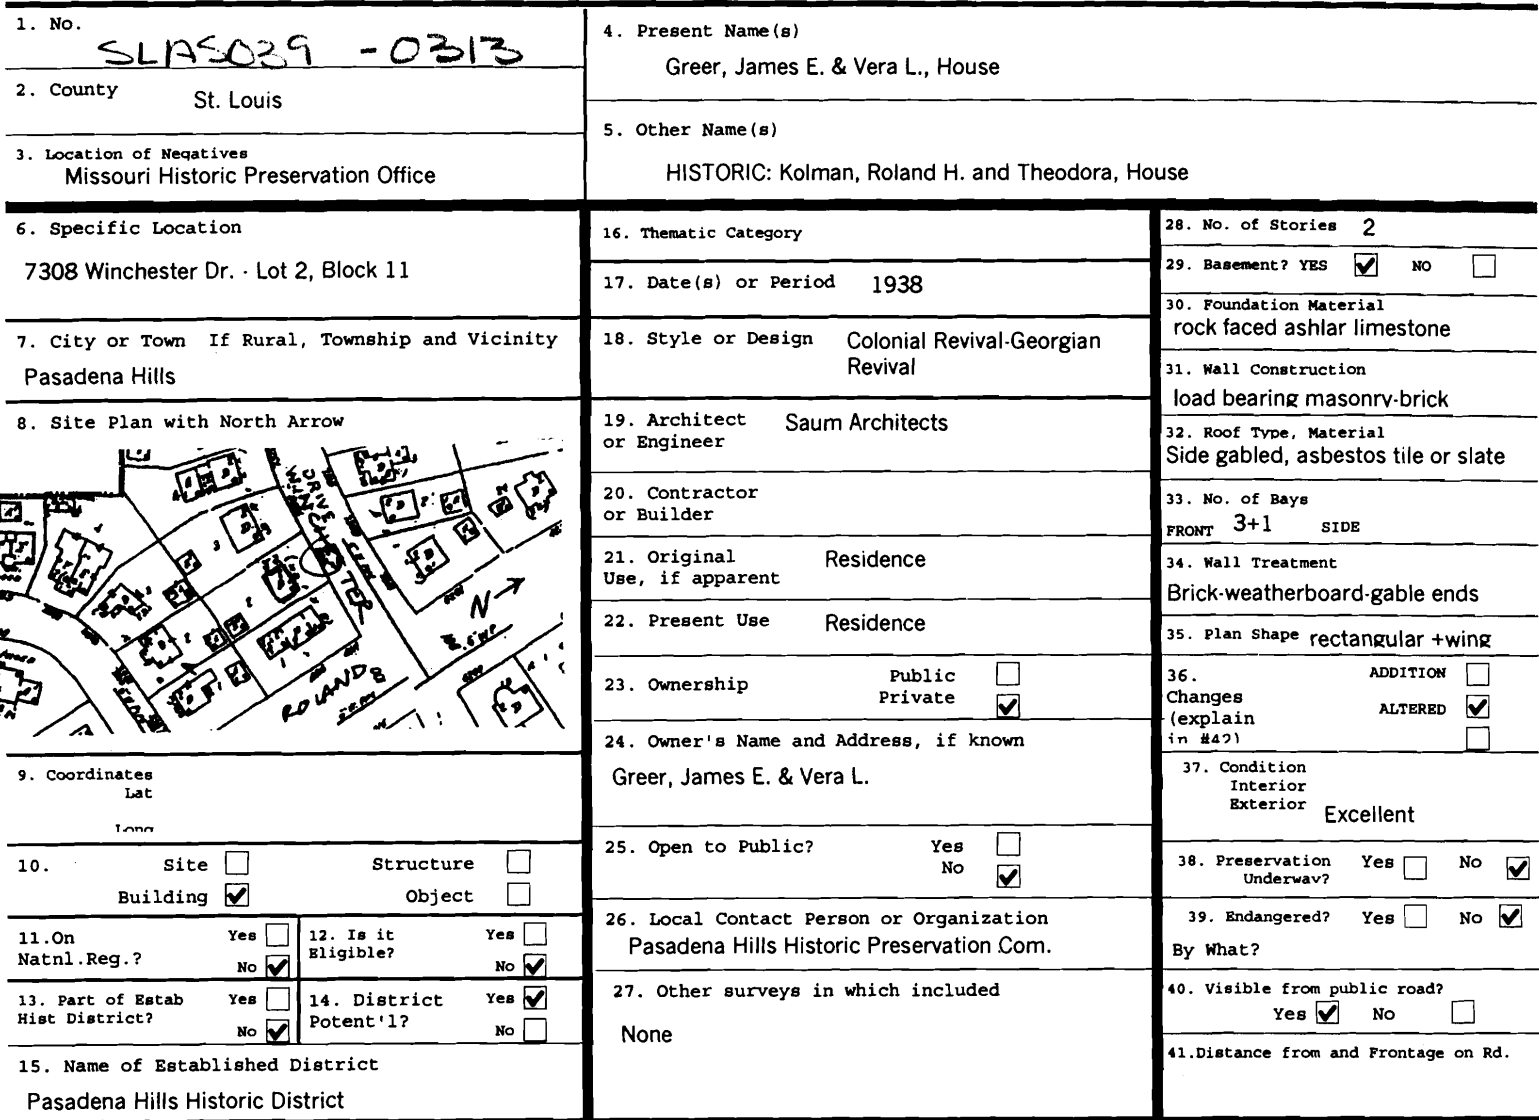 1. No.
SLAS039 -0313
2. County
St. Louis
3. Location of Negatives
Missouri Historic Preservation Office
4. Present Name(s)
Greer, James E. & Vera L., House
5. Other Name(s)
HISTORIC: Kolman, Roland H. and Theodora, House
6. Specific Location
7308 Winchester Dr. - Lot 2, Block 11
7. City or Town If Rural, Township and Vicinity
Pasadena Hills
8. Site Plan with North Arrow
DRIVE
WINCHESTER
N
ROLAND
9. Coordinates
Lat
Long
10. Site Structure
Building Object
11.On Yes
Natnl.Reg.? No
12. Is it Yes
Eligible? No
13. Part of Estab Yes
Hist District? No
14. District Yes
Potent'l? No
15. Name of Established District
Pasadena Hills Historic District
16. Thematic Category
17. Date(s) or Period 1938
18. Style or Design Colonial Revival-Georgian
Revival
19. Architect Saum Architects
or Engineer
20. Contractor
or Builder
21. Original Residence
Use, if apparent
22. Present Use Residence
23. Ownership Public
Private
24. Owner's Name and Address, if known
Greer, James E. & Vera L.
25. Open to Public? Yes
No
26. Local Contact Person or Organization
Pasadena Hills Historic Preservation Com.
27. Other surveys in which included
None
28. No. of Stories 2
29. Basement? YES NO
30. Foundation Material
rock faced ashlar limestone
31. Wall Construction
load bearing masonry-brick
32. Roof Type, Material
Side gabled, asbestos tile or slate
33. No. of Bays
FRONT 3+1 SIDE
34. Wall Treatment
Brick-weatherboard-gable ends
35. Plan Shape rectangular +wing
36. ADDITION
Changes
(explain ALTERED
in #42)
37. Condition
Interior
Exterior Excellent
38. Preservation Yes No
Underway?
39. Endangered? Yes No
By What?
40. Visible from public road?
Yes No
41.Distance from and Frontage on Rd.